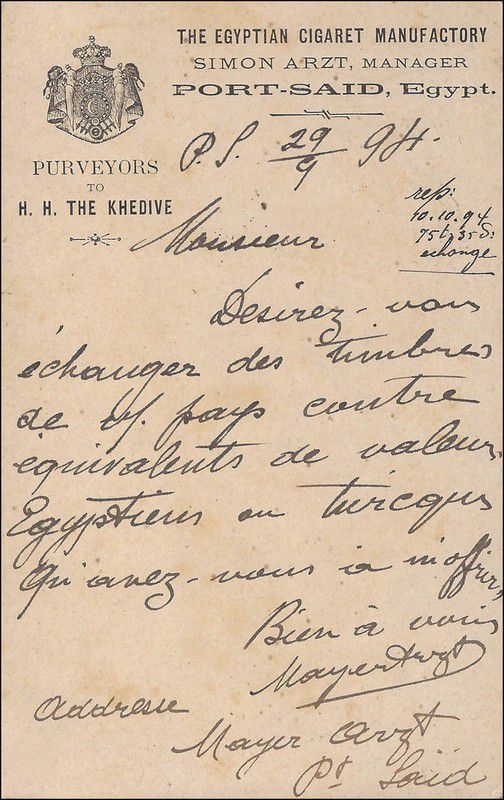 THE EGYPTIAN CIGARET MANUFACTORY
SIMON ARZT, MANAGER
PORT-SAID, Egypt.
PURVEYORS
TO
H. H. THE KHEDIVE
P. S. 29/9 94.
rep:
10.10.94
75t. 35 d.
echange
Monsieur
Désirez-vous
échanger des timbres
de v/. pays contre
équivalents de valeur
Egyptiens ou turcques
Qu'avez-vous à m'offrir,
Bien à vous
Mayer Arzt
Addresse
Mayer Arzt
Pt Saïd